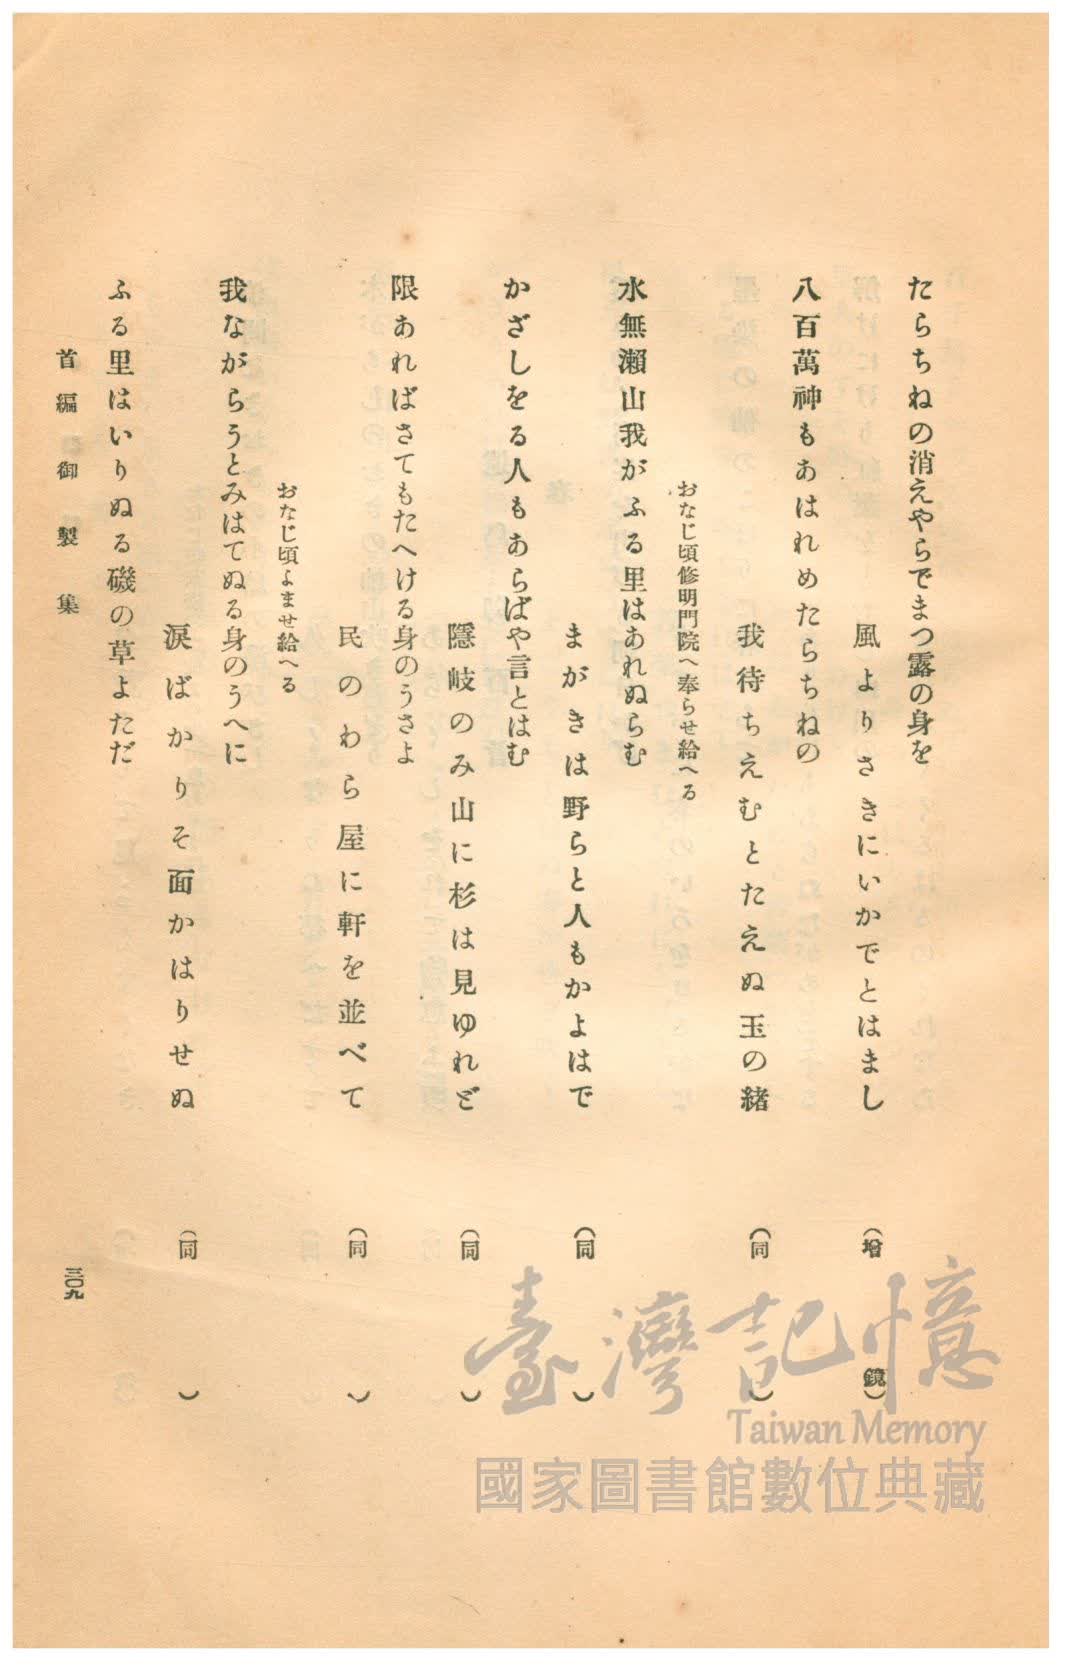 たらちねの消えやらでまつ露の身を
風よりさきにいかでとはまし（增鏡）
八百萬神もあはれめたらちねの
我待ちえむとたえぬ玉の緒（同）
おなじ頃修明門院へ奉らせ給へる
水無瀨山我がふる里はあれぬらむ
まがきは野らと人もかよはで（同）
かざしをる人もあらばや言とはむ
隱岐のみ山に杉は見ゆれど（同）
限あればさてもたへける身のうさよ
民のわら屋に軒を並べて（同）
おなじ頃よませ給へる
我ながらうとみはてぬる身のうへに
淚ばかりそ面かはりせぬ（同）
ふる里はいりぬる磯の草よただ
首編御製集
三〇九
臺灣記憶
Taiwan Memory
國家圖書館數位典藏